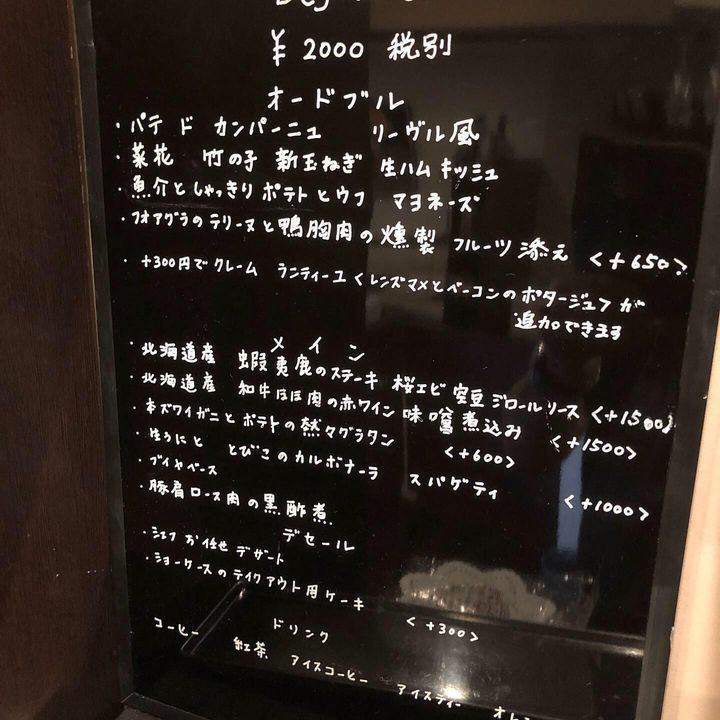 ¥2000 税別
オードブル
・パテ ド カンパーニュ リーヴル風
・菜花 竹の子 新玉ねぎ 生ハム キッシュ
・魚介としゃっきりポテトとウフ マヨネーズ
・フォアグラのテリーヌと鴨胸肉の燻製 フルーツ添え <+650>
・+300円でクレーム ランティーユ<レンズマメとベーコンのポタージュ>が
追加できます
メイン
・北海道産 蝦夷鹿のステーキ 桜エビ 空豆 ジロールソース <+1500>
・北海道産 和牛ほほ肉の赤ワイン味噌煮込み <+1500>
・本ズワイガニとポテトの熱々グラタン <+600>
・生うにと とびこのカルボナーラ スパゲティ <+1000>
・ブイヤベース
・豚肩ロース肉の黒酢煮
デセール
・シェフ お任せ デザート
・ショーケースのテイクアウト用ケーキ <+300>
ドリンク
コーヒー 紅茶 アイスコーヒー アイスティー